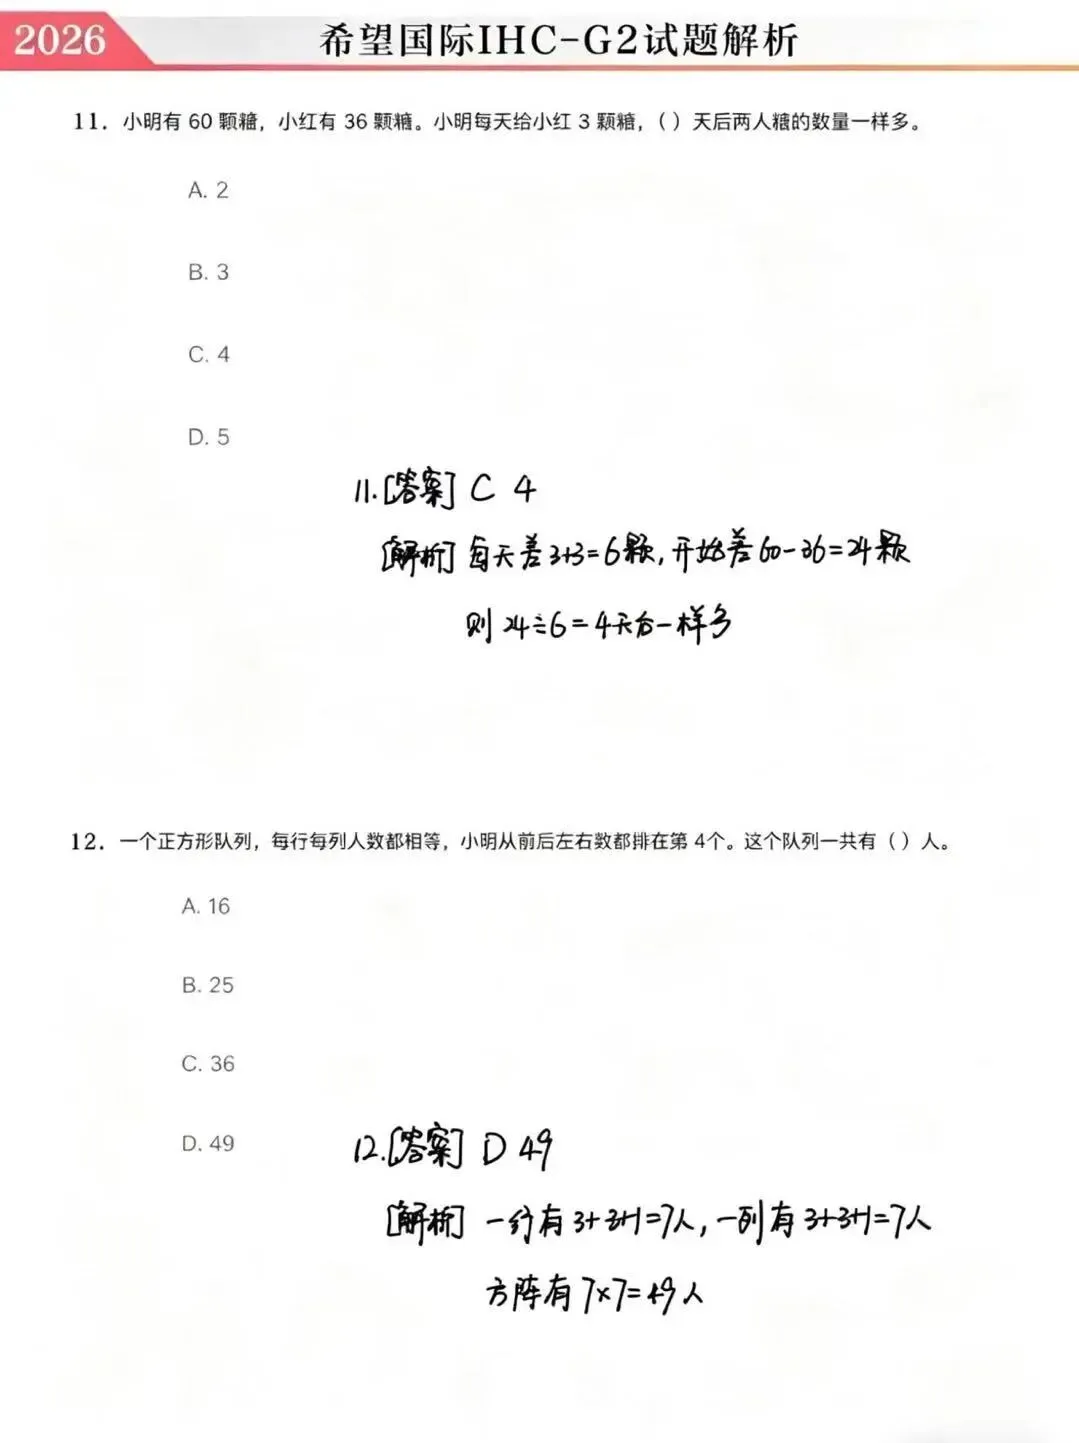 2026
希望国际IHC-G2试题解析
11. 小明有 60 颗糖，小红有 36 颗糖。小明每天给小红 3 颗糖，（ ）天后两人糖的数量一样多。
A. 2
B. 3
C. 4
D. 5
11.[答案] C 4
[解析] 每天差3+3=6颗,开始差60-36=24颗
则 24÷6=4天后一样多
12. 一个正方形队列，每行每列人数都相等，小明从前后左右数都排在第 4个。这个队列一共有（ ）人。
A. 16
B. 25
C. 36
D. 49
12.[答案] D 49
[解析] 一行有 3+3+1=7人,一列有 3+3+1=7人
方阵有 7×7=49人